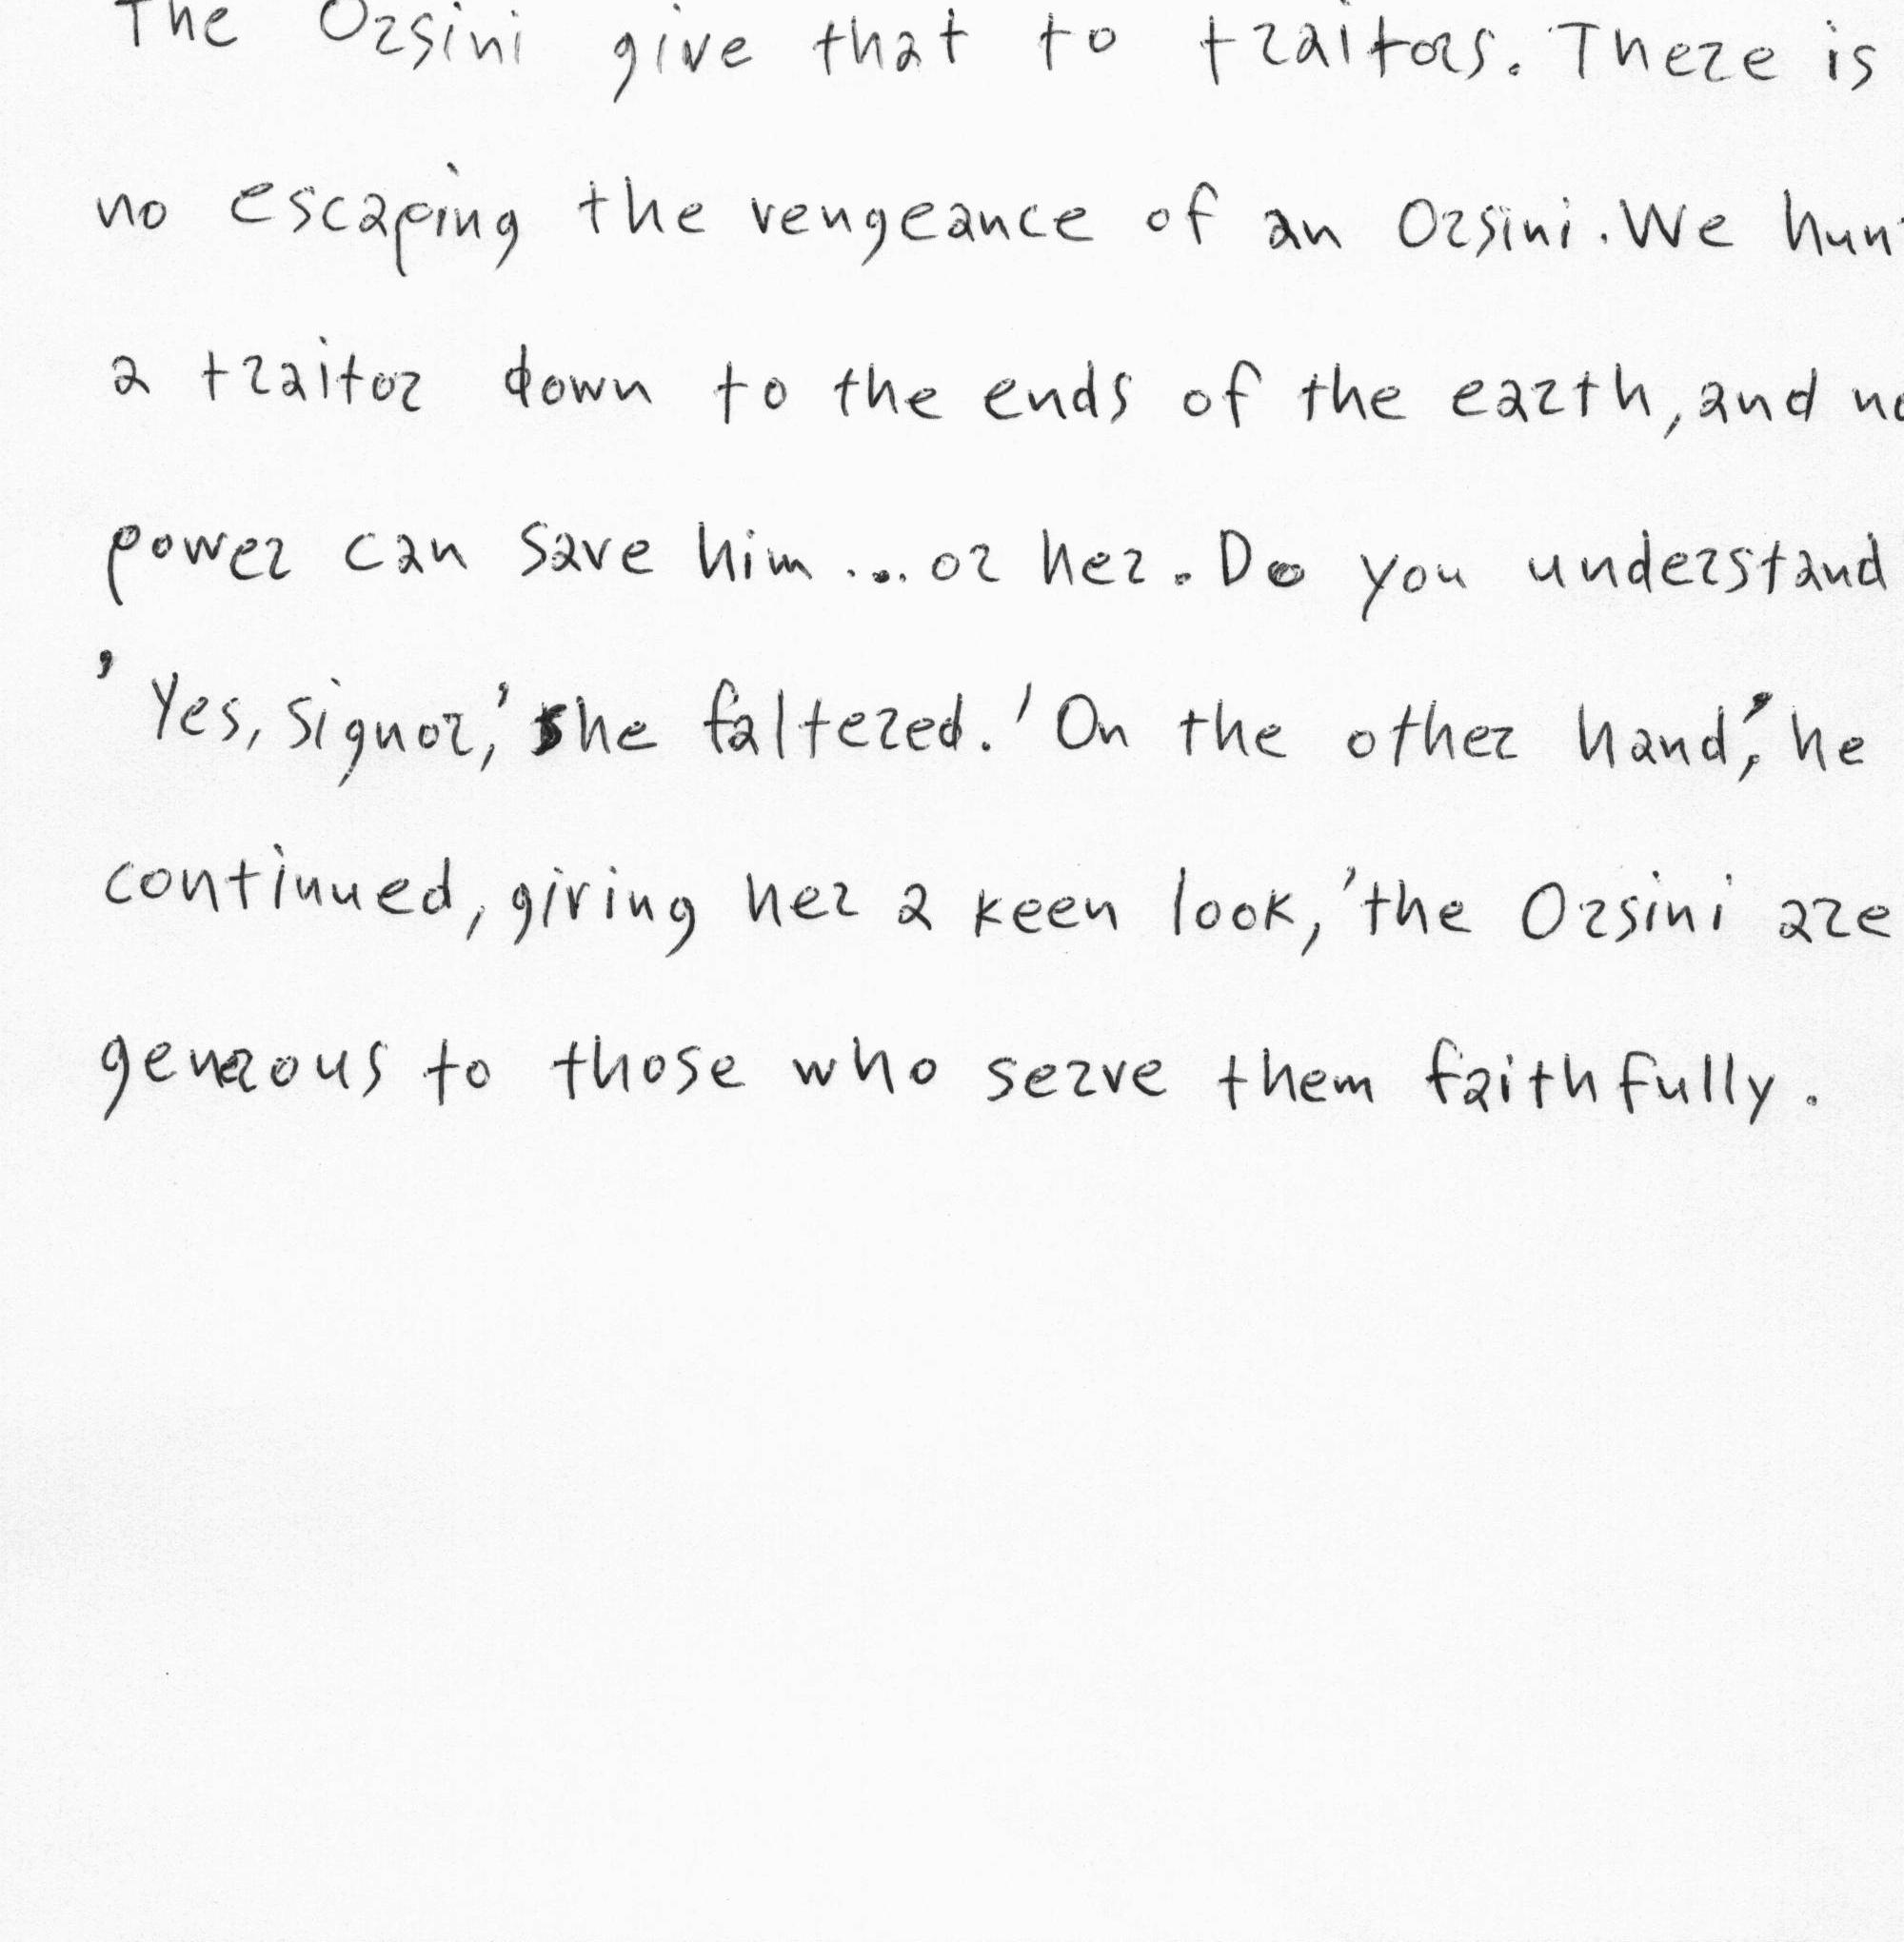 The Orsini give that to traitors. There is
no escaping the vengeance of an Orsini. We hunt
a traitor down to the ends of the earth, and no
power can save him... or her. Do you understand
'Yes, signor,' she faltered. 'On the other hand,' he
continued, giving her a keen look, 'the Orsini are
generous to those who serve them faithfully.